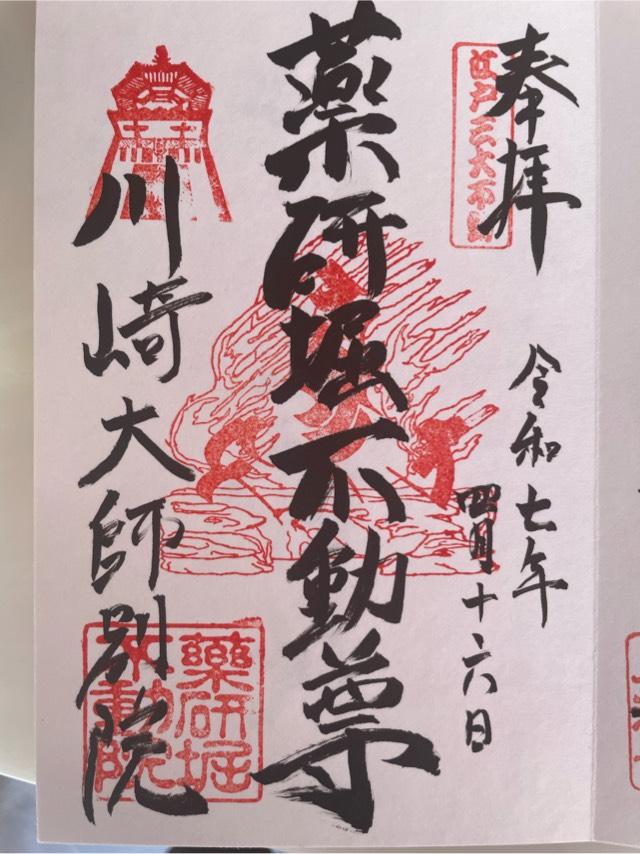 奉拝
江戸三大不動
令和七年
四月十六日
薬研堀不動尊
川崎大師別院
薬研堀
不動院